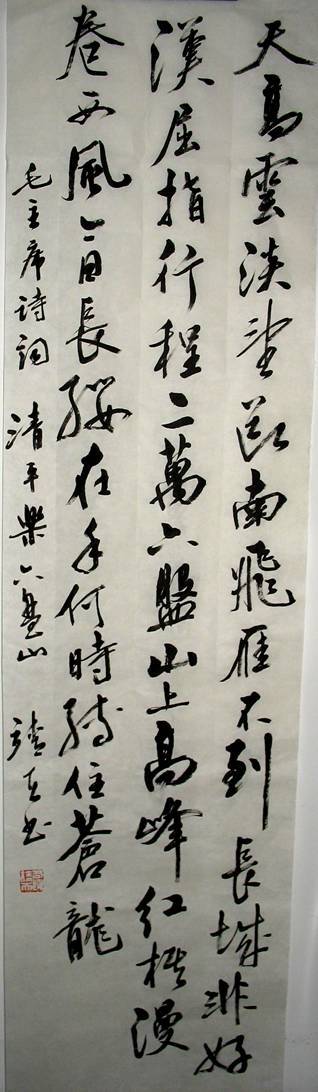 天高雲淡望斷南飛雁不到長城非好
漢屈指行程二萬六盤山上高峰紅旗漫
卷西風今日長纓在手何時縛住蒼龍
毛主席詩詞 清平樂六盘山